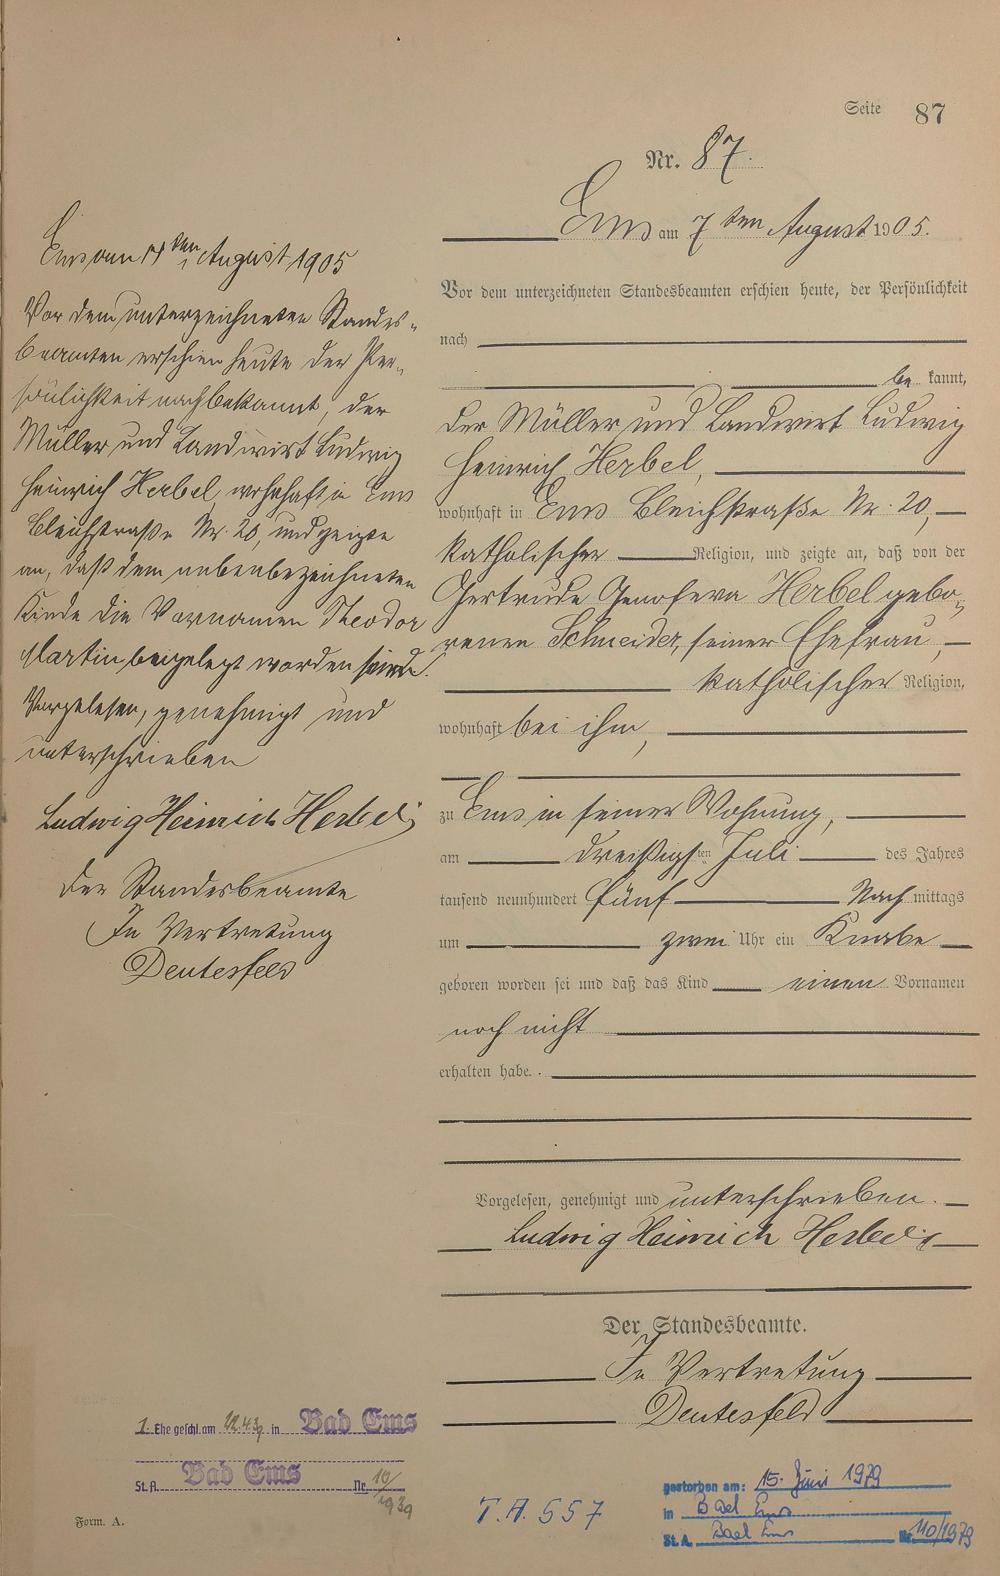 Seite 87
Nr. 87.
Ems am 7ten August 1905.
Vor dem unterzeichneten Standesbeamten erschien heute, der Persönlichkeit
nach
be kannt,
der Müller und Landwirt Ludwig
Heinrich Herbel,
wohnhaft in Ems Bleichstraße Nr. 20,
katholischer Religion, und zeigte an, daß von der
Gertrude Genofeva Herbel gebo-
renen Schneider, seiner Ehefrau,
katholischer Religion,
wohnhaft bei ihm,
zu Ems in seiner Wohnung,
am dreißigsten Juli des Jahres
tausend neunhundert fünf Nach mittags
um zwei Uhr ein Knabe
geboren worden sei und daß das Kind einen Vornamen
noch nicht
erhalten habe.
Vorgelesen, genehmigt und unterschrieben.
Ludwig Heinrich Herbel
Der Standesbeamte.
In Vertretung
Deutesfeld
Ems am ten August 1905
Vor dem unterzeichneten Standes-
beamten erschien heute der Per-
sönlichkeit nach bekannt, der
Müller und Landwirt Ludwig
Heinrich Herbel, wohnhaft in Ems
Bleichstraße Nr. 20, und zeigte
an, daß dem nebenbezeichneten
Kinde die Vornamen Theodor
Martin beigelegt worden sind.
Vorgelesen, genehmigt und
unterschrieben
Ludwig Heinrich Herbel
Der Standesbeamte
In Vertretung
Deutesfeld
1. Ehe geschl. am in Bad Ems
St. A. Bad Ems Nr. 10/
1939
Form. A.
T. A. 557
gestorben am: 15. Juni 1979
in Bad Ems
St. A. Bad Ems Nr. 110/1979